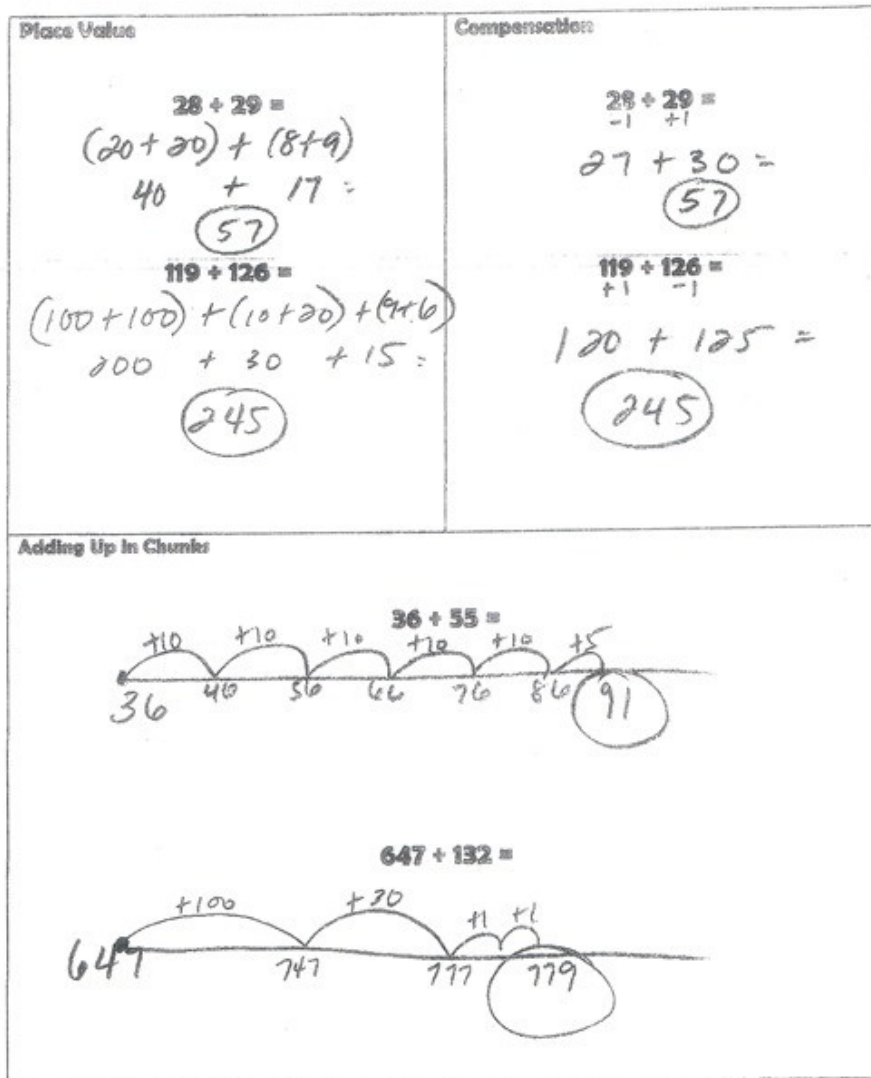 Place Value
28 + 29 =
(20+20) + (8+9)
40 + 17 =
57
119 + 126 =
(100+100) + (10+20) + (9+6)
200 + 30 + 15 =
245
Compensation
28 + 29 =
-1 +1
27 + 30 =
57
119 + 126 =
+1 -1
120 + 125 =
245
Adding Up in Chunks
36 + 55 =
+10 +10 +10 +10 +10 +5
36 46 56 66 76 86 91
647 + 132 =
+100 +30 +1 +1
647 747 777 779